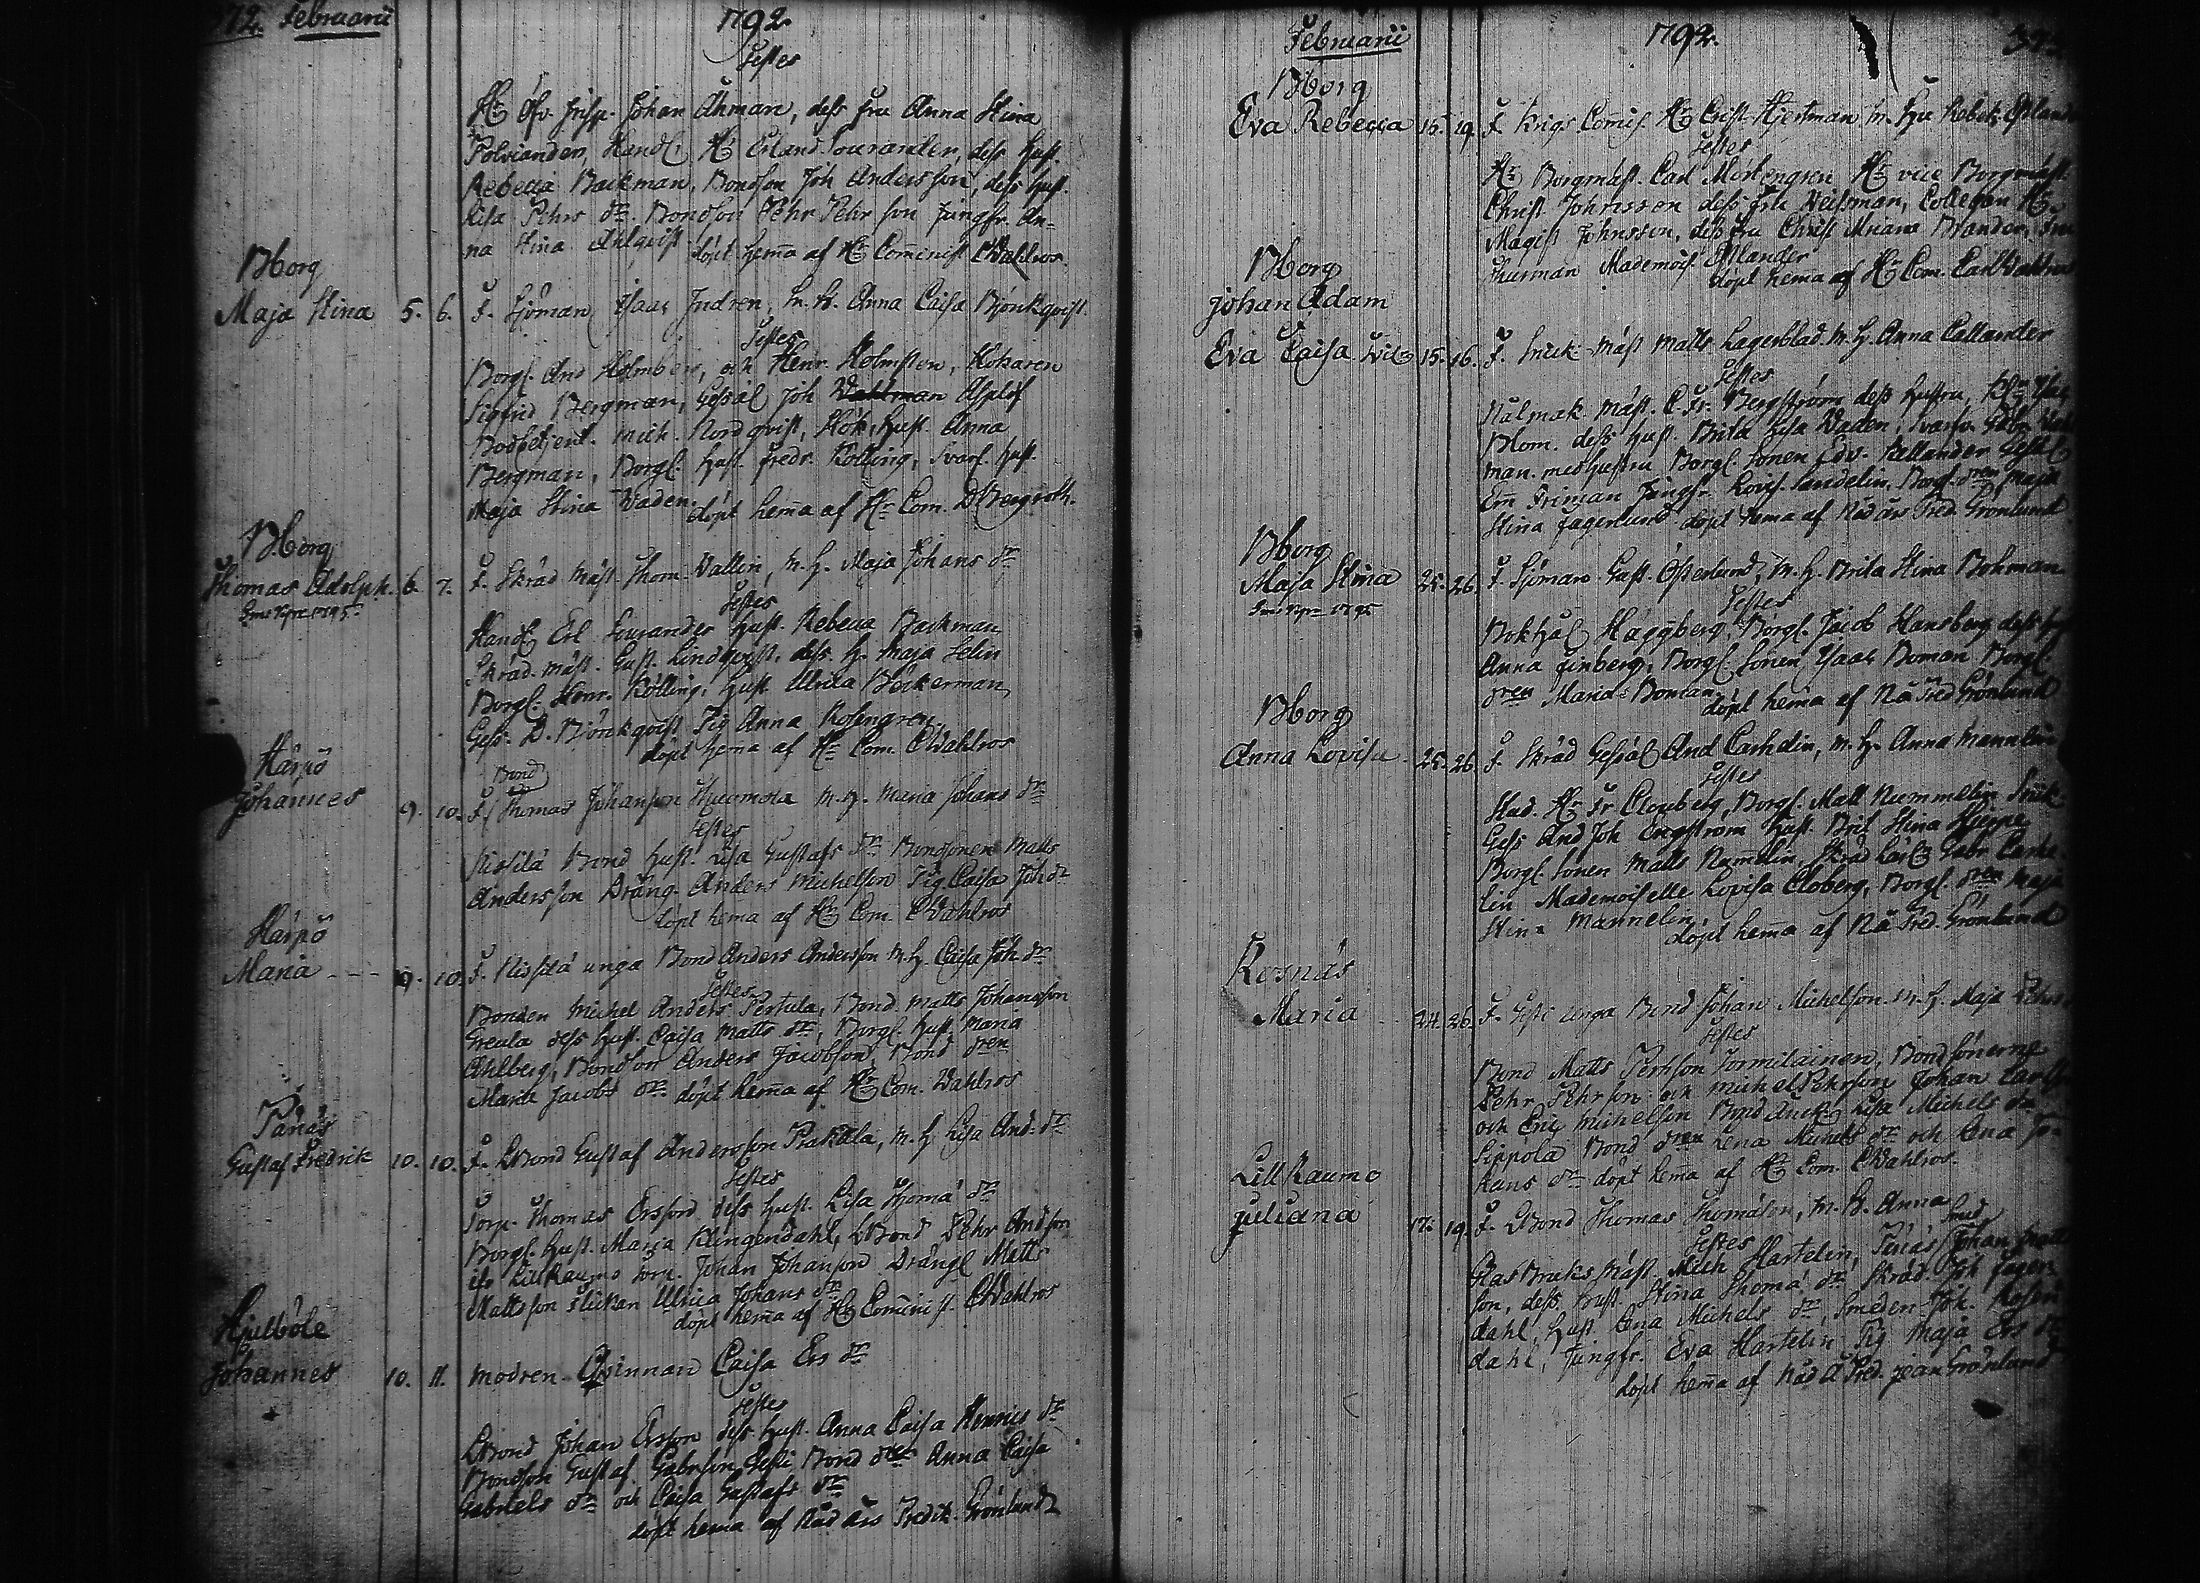 372. Februarii 1792.
Testes
Hr Öfv. Insp. Johan Åhman, dess fru Anna Stina
Polviander, Handl. Hr Erland Sourander, dess hust.
Rebecca Backman, Bondson Joh Andersson, dess hust.
Lisa Pehrs dr. Bondson Pehr Pehrson Jungfr. An-
na Stina Ahlqvist döpt hema af Hr Cominist CWahlros
BBorg
Maja Stina 5. 6. F. Sjöman Isaac Indren, m. h. Anna Caisa Björkqvist
Testes
Borgl. And Holmberg, och Henr. Holmsten, Hokaren
Sigfrid Bergman, Gesäl Joh Asplöf
Bodbetjent. Mich. Nordqvist, Hök. Hust. Anna
Bergman, Borgl. hust. fredr. Kölling, Svarf. hust.
Maja Stina Vaden. döpt hema af Hr Com. D Bergroth.
BBorg
Thomas Adolph. 6. 7. F. Skräd mäst. Thom. Vallin, m. h. Maja Johans dr
Testes
Handl Erl Sourander hust. Rebecca Backman
Skräd. mäst. Gust. Lindqvist, dess. h. Maja Selin
Borgl. Henr. Kölling, hust. Ulrica Beckerman
Gess. D. Björkqvist Pig Anna Rosengren.
döpt hema af Hr Com. CWahlros
Härpö
Johannes 9. 10. F. Bond Thomas Johansson m. h. Maria Johans dr
Testes
Nissilä Bond hust. Lisa Gustafs dr Bondsonen Matts
Andersson Dräng. Anders Michelson Pig. Caisa Joh dr
döpt hema af Hr Com. CWahlros
Härpö
Maria - - - 9. 10. F. Nissilä unga Bond Anders Andersson m. h. Caisa Joh. dr
Testes
Bonden Michel Anders Pertula, Bond. Matts Johansson
Greula dess hust. Caisa Matts dr, Borgl. hust. Maria
Ahlberg, Bondson Anders Jacobson, Bond dren
Maria Jacobs dr. döpt hema af Hr Com. Wahlros
Pänäs
Gustaf Fredrik 10. 10. F. LBond Gustaf Andersson Prakala, m. h. Lisa And. dr
Testes
Torp. Thomas Ersson dess hust. Lisa Thoma dr
Borgl. hust. Maria Klingendahl, LBond Pehr Andson
ifr LillRaumo torp. Johan Johanson Drängl Matts
Mattsson flickan Ulrica Johans dr
döpt hema af Hr Cominist. CWahlros
Hjulböle
Johannes 10. 11. modren Qvinnan Caisa Ers dr
Testes
LBond Johan Ersson dess hust. Anna Caisa Henrics dr
Bondson Gustaf Gabrson Bond dren Anna Caisa
Gabriels dr och Caisa Gustafs dr
döpt hema af Nåd års Predik. Grönlund
Februarii 1792.
BBorg
Eva Rebecca 16. 19. F. Krigs Comis. Hr Crist. Hjertman m. fru Rebek.
Testes
Hr Borgmäst. Carl Mörtengren Hr vice Borgmäst.
Christ. Johnsson dess fru Collegan Hr
Magist Johnsson, dess fru Christ. Miriam Brander, fru
Mademois.
döpt hema af Hr Com. Carl Wahlros
BBorg
Johan Adam
&
Eva Caisa 15. 16. F. Snick. Mäst Matts Lagerblad. m. h. Anna Callander
Testes
Nålmak. Mäst. C. Fr. Bergström dess hustru,
Blom. dess hust. Brita Lisa Vaden, Svarfv. Gabr.
man. med hustru Borgl. Sonen Edv. Callander Gesäl
Em Friman Jungfr. Lovis. Sandelin. Borgl. dren Maja
Stina Fagerlund. döpt hema af Nåd års Pred. Grönlund
BBorg
Maja Stina 25. 26. F. Sjöman Gust. Österlund, m. h. Brita Stina Bohman
Testes
Bokhål Häggberg, Borgl. Jacob Hansberg dess hust
Anna Finberg, Borgl. Sonen Isaac Boman Borgl.
dren Maria Boman döpt hema af Nå Pred Grönlund
BBorg
Anna Lovisa 25. 26. F. Skräd Gesäl And Carhelin, m. h. Anna Mannelin
Testes
Stud. Hr Fr Clouberg, Borgl. Matt Nummelin Snik.
Gess And Joh Engström hust. Brit Stina
Borgl. Sonen Matts Numelin. Skräd lärl Gabr. Carhe-
lin Mademoiselle Lovisa Cloberg, Borgl. dren Maja
Stina Mannelin. döpt hema af Nå Pred. Grönlund
Kosnäs
Maria 24. 26. F. unga Bond Johan Michelson. m. h. Maja Pehrs
Testes
Bond Matts Pehrson Sormilainen, Bondsönerne
Pehr Pehrson och Michel Pehrson Johan Carlson
och Eric Michelson Lisa Michels dr
Sippola Bond dren Lena Michels dr och Lena Jo-
hans dr döpt hema af Hr Com. CWahlros.
LillRaumo
Juliana 17. 19. F. LBond Thomas Thomason, m. h. Anna
Testes
Glas Bruks Mäst. Mich Hartelin, Pänäs Smed Johan
son, dess hust. Stina Thoma dr Skräd. Joh Fager-
dahl, hust. Lena Michels dr, Smeden Joh. Rosen-
dahl, Jungfr. Eva Hartelin Pig Maja Ers dr
döpt hema af Nåd å Pred. Jean Grönlund